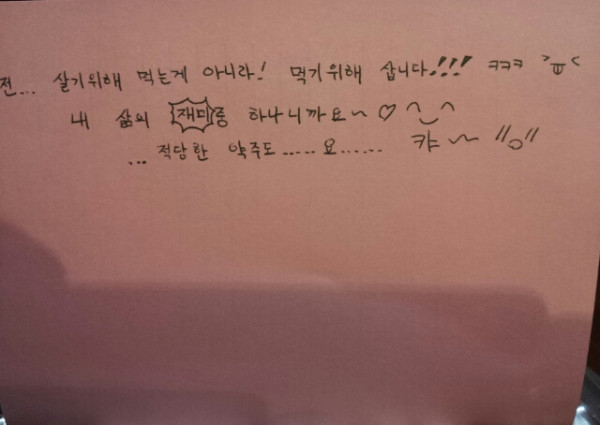 전... 살기위해 먹는게 아니라! 먹기위해 삽니다!!! ㅋㅋㅋ >ㅠ<
내 삶의 재미중 하나니까요~ ♡ ^‿^
... 적당한 약주도..... 요...... 캬~ "o"